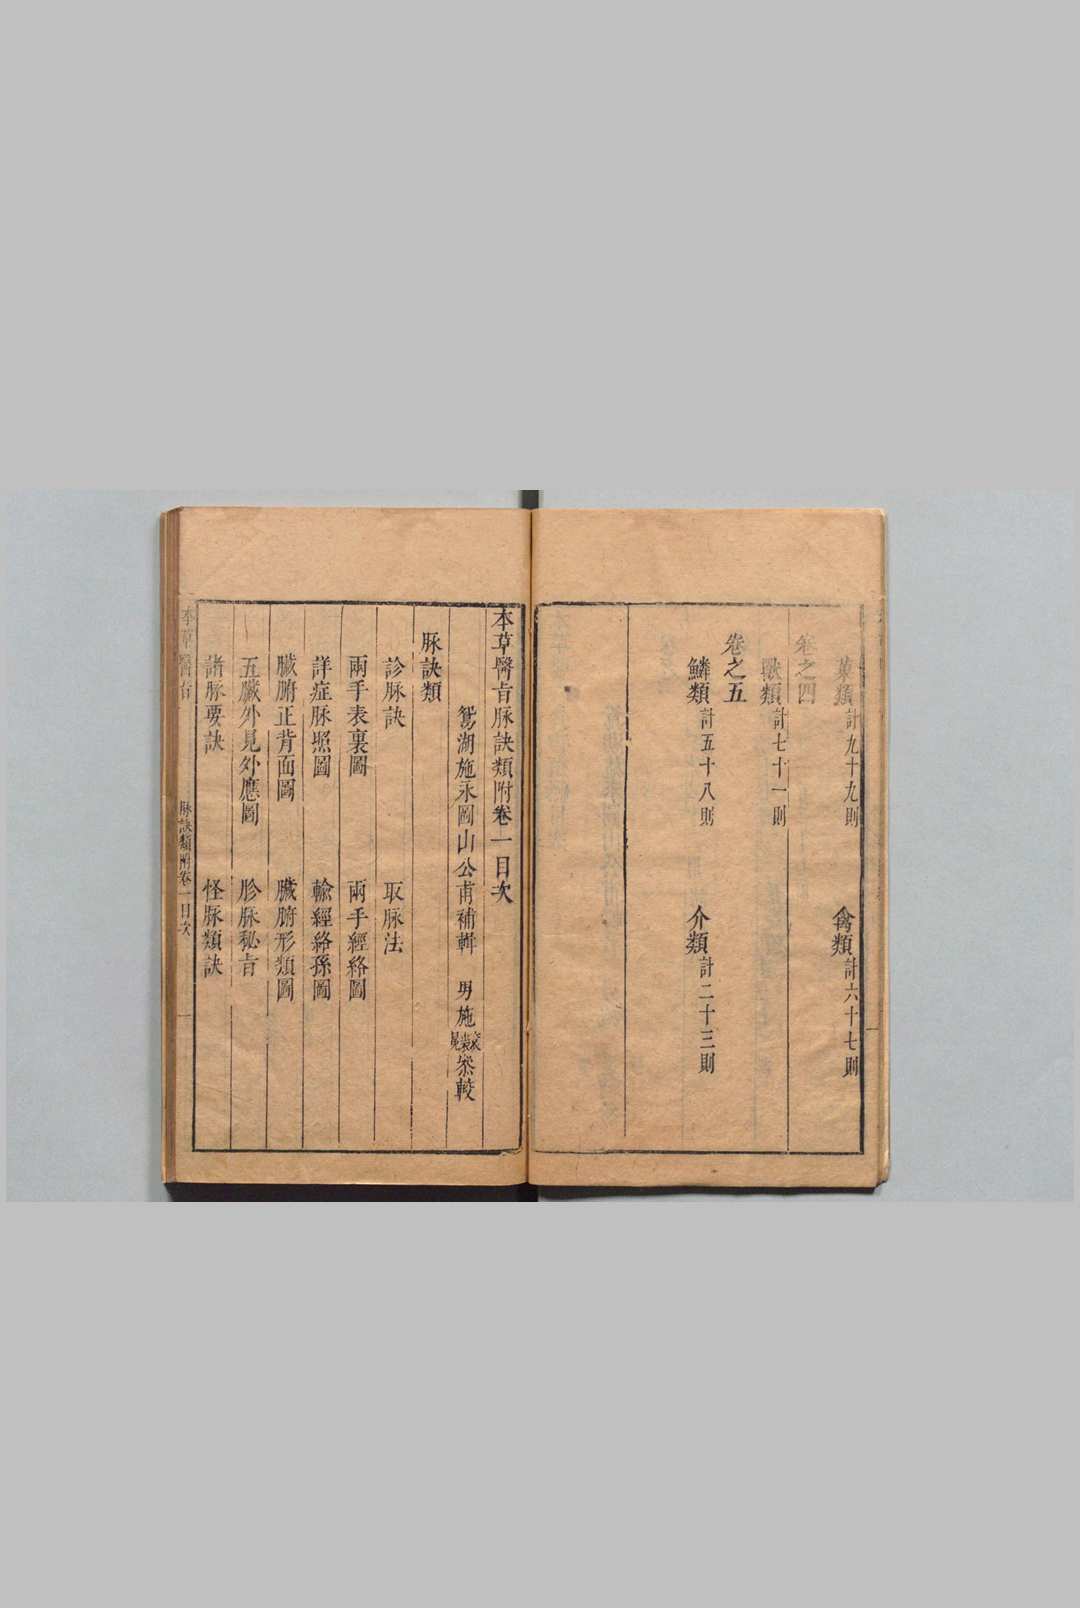 菓類計九十九則　禽類計六十七則
卷之四
獸類計七十一則
卷之五
鱗類計五十八則　介類計二十三則
本草醫旨脉訣類附卷一目次
鴛湖施永圖山公甫補輯　男施參較
脉訣類
診脉訣　取脉法
兩手表裏圖　兩手經絡圖
詳症脉照圖　輸經絡孫圖
臟腑正背面圖　臟腑形類圖
五臟外見外應圖　胗脉秘旨
諸脉要訣　怪脉類訣
本草醫旨　脉訣類附卷一目次　一